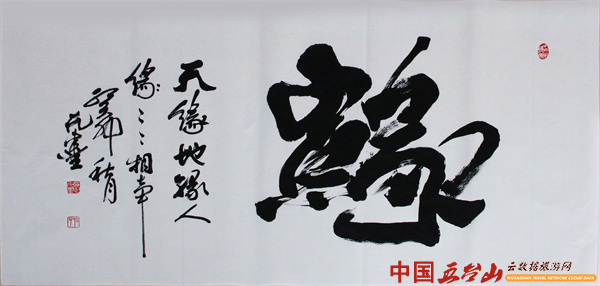 緣
天缘地缘人
缘〻〻相牵
中国五台山 云数据旅游网
WUTAISHAN TRAVEL NETWORK CLOUD DATA